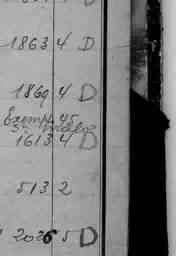 1863 4 D
1869 4 D
45
1613 4 D
513 2
2026 5 D